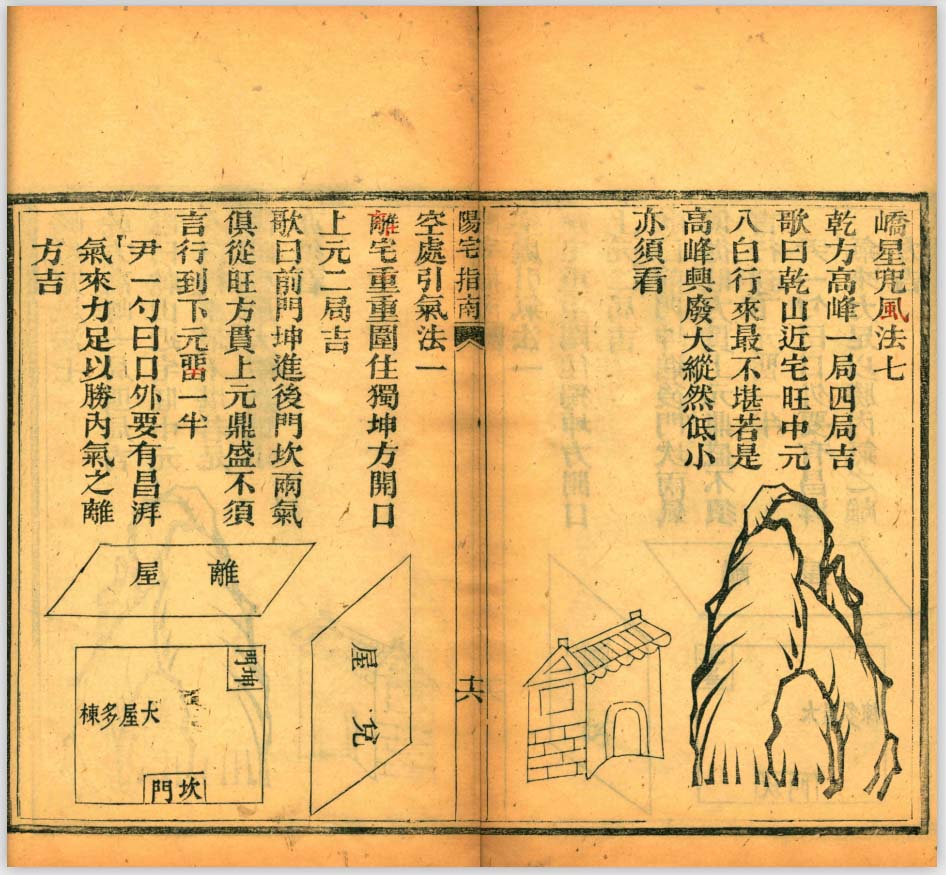 嶠星兜風法七
乾方高峰一局四局吉
歌曰乾山近宅旺中元
八白行來最不堪若是
高峰興廢大縱然低小
亦須看
陽宅指南
十六
空處引氣法一
離宅重重圍住獨坤方開口
上元二局吉
歌曰前門坤進後門坎兩氣
俱從旺方貫上元鼎盛不須
言行到下元畱一半
尹一勺曰口外要有昌湃
氣來力足以勝內氣之離
方吉
離屋
兌屋
坤門
大屋多棟
坎門